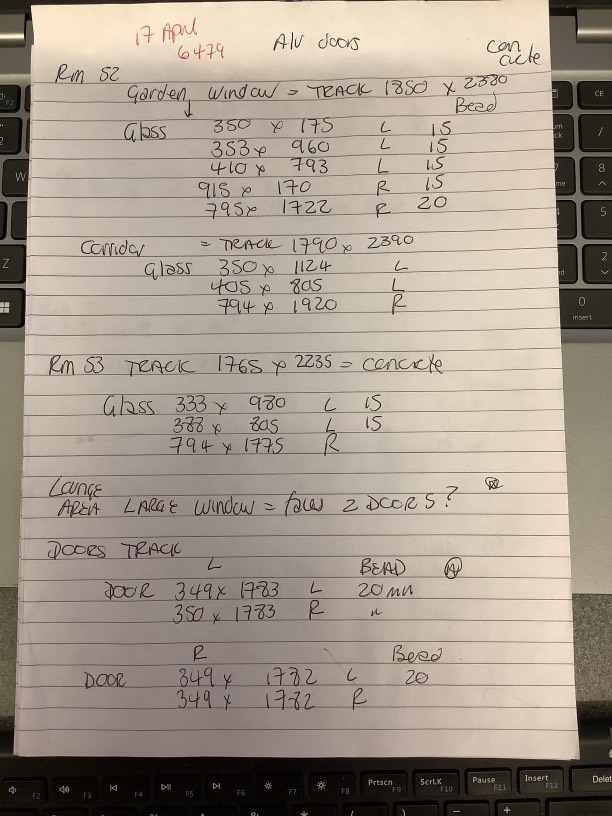 17 April
6479
Alu doors
concrete
Rm 52
Garden window = TRACK 1850 x 2380
Bead
Glass 350 x 175 L 15
353 x 960 L 15
410 x 793 L 15
915 x 170 R 15
795 x 1722 R 20
Corridor = TRACK 1790 x 2390
Glass 350 x 1124 L
405 x 805 L
794 x 1920 R
Rm 53 TRACK 1765 x 2235 = concrete
Glass 333 x 980 L 15
388 x 805 L 15
794 x 1775 R
Lounge
AREA LARGE window = faces 2 DOORS?
DOORS TRACK
L BEAD A
DOOR 349 x 1783 L 20mm
350 x 1783 R "
R Bead
DOOR 349 x 1782 L 20
349 x 1782 R